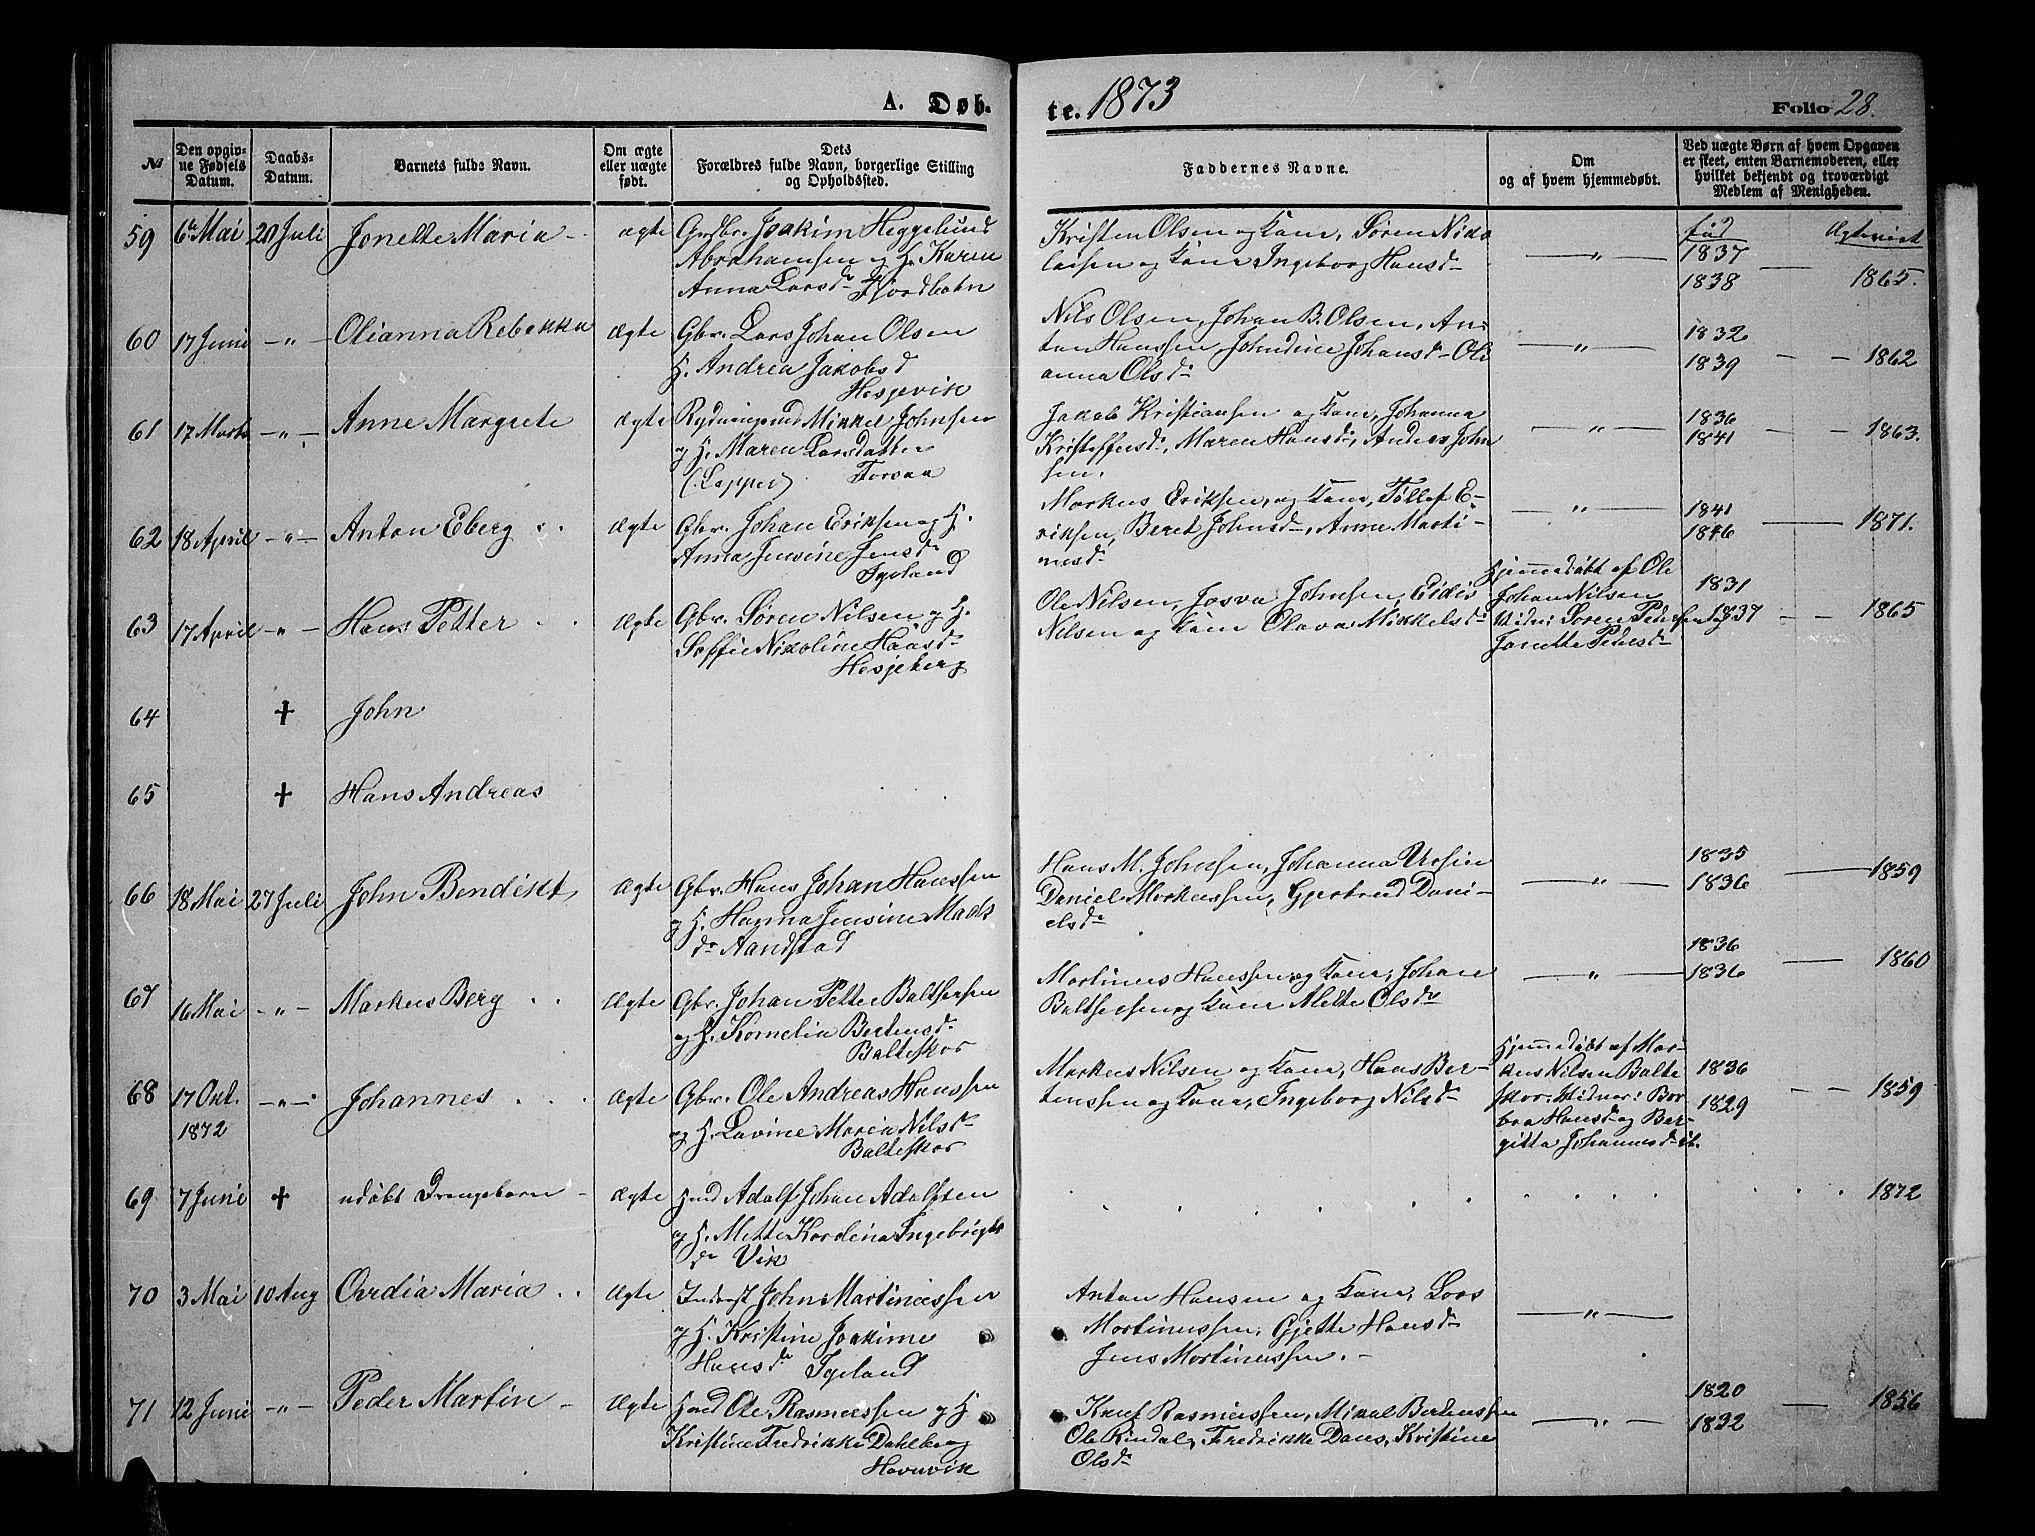 A. Døb-
te. 1873
Folio 28.
No
Den opgiv-
ne Fødsels
Datum.
Daabs-
Datum.
Barnets fulde Navn.
Om ægte
eller uægte
født.
Dets
Forældres fulde Navn, borgerlige Stilling
og Opholdssted.
Faddernes Navne.
Om
og af hvem hjemmedøbt.
Ved uægte Børn af hvem Opgaven
er skeet, enten Barnemoderen, eller
hvilket bekjendt og troværdigt
Medlem af Menigheden.
59 6te Mai 20 Juli Jonette Maria - ægte
Gaardbr. Joakim Heggelund
Abrahamsen og H. Karen
Anna Larsdr Fjordbotn
Kristen Olsen og Kone, Søren Niko
laisen og Kone Ingeborg Hansdr
— " —
fød Ægteviet
1837
1838 — 1865.
60 17 Juni - " - Olianna Rebekka Ægte
Gbr. Lars Johan Olsen
H. Andrea Jakobsd
Hesjevik
Nils Olsen, Johan B. Olsen, An-
ton Hanssen, Johndine Johansdr Oli
anna Olsdr
— " —
1832
1839 - - 1862
61 17 Marts - " - Anne Margrete Ægte
Rydningsmd Mikkel Johnsen
og H. Maren Larsdatter
(Lapper) Forsaa
Jakob Kristiansen og Kone, Johanna
Kristoffersdr, Maren Hansdr, Anders John
sen.
— " —
1836
1841 - - 1863.
62 18 April - " - Anton Eberg . . Ægte
Gbr. Johan Eriksen og H.
Anna Jensine Jensdr
Igeland
Markus Eriksen, og Kone, Tollef E-
riksen, Beret Johnsdr, Anne Marti-
nesdr
— " —
1841
1846 — 1871.
63 17 April - " - Hans Petter . . Ægte
Gbr. Søren Nilsen og H.
Soffie Nikoline Hansdr
Hesjeberg
Ole Nilsen, Josva Johnsen, Eidis
Nilsen og Kone Olava Mikkelsdr
Hjemmedøbt af Ole
Johan Nilsen
Vidn: Søren Pedersen og
Jonette Pedersdr
1831
1837 - - 1865
64 † John
65 † Hans Andreas
66 18 Mai 27 Juli John Bendikt, Ægte
Gbr. Hans Johan Hanssen
og H. Hanna Jensine Mads
dr Aandstad
Hans M. Johnsen, Johanna Ursin
Daniel Markussen, Gjertrud Dani-
elsdr
— " —
1835
1836 — 1859
67 16 Mai - " - Markus Berg . . Ægte
Gbr. Johan Petter Baltsersen
og H. Kornelia Bertensdr
Balteskar
Martinus Hanssen og Kone, Johan
Baltsersen og Kone Mette Olsdr
— " —
1836
1836 — 1860
68 17 Okt. - " - Johannes . . . Ægte
1872
Gbr. Ole Andreas Hanssen
og H. Lavine Maria Nilsdr
Balteskar
Markus Nilsen og Kone, Hans Ber-
tenssen og Kone, Ingeborg Nilsdr
Hjemmedøbt af Mar-
kus Nilsen Balte
skar. Vidner: Bar
bra Hansd og Ber-
gitta Johannesd ib.
1836
1829 - - 1859
69 7 Juni † udøbt Drengebarn - Ægte
Hmd Adolf Johan Adolfsen
og H. Mette Kordina Ingebrigts
dr Vik
1872
70 3 Mai 10 Aug Ovedia Maria . . Ægte
Inderst John Martinussen
og H. Kristine Joakime
Hansdr Igeland
Anton Hansen og Kone, Lars
Martinussen, Gjette Hansdr
Jens Martinussen. -
— " —
71 12 Juni - " - Peder Martin - Ægte
Hmd Ole Rasmussen og H
Kristine Fredrikke Dahlberg
Havnvik
Knut Rasmussen, Mikal Bertenssen
Ole Rindal, Fredrikke Dans, Kristine
Olsdr
— " —
1820
1832 — 1856